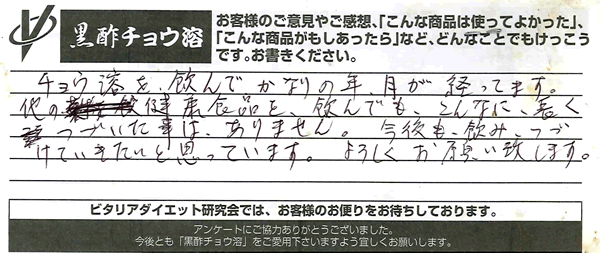 黒酢チョウ溶
お客様のご意見やご感想、「こんな商品は使ってよかった」、
「こんな商品がもしあったら」など、どんなことでもけっこう
です。お書きください。
チョウ溶を、飲んでかなりの年、月が経ってます。
他の健康食品を、飲んでも、こんなに、長く
つづいた事は、ありません。今後も、飲み、つづ
けていきたいと思っています。よろしくお願い致します。
ビタリアダイエット研究会では、お客様のお便りをお待ちしております。
アンケートにご協力ありがとうございました。
今後とも「黒酢チョウ溶」をご愛用下さいますよう宜しくお願いします。